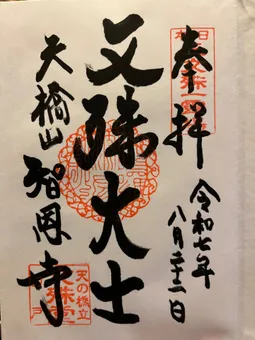 奉拝
令和七年
八月二十二日
文殊大士
天橋山
智恩寺
天の橋立